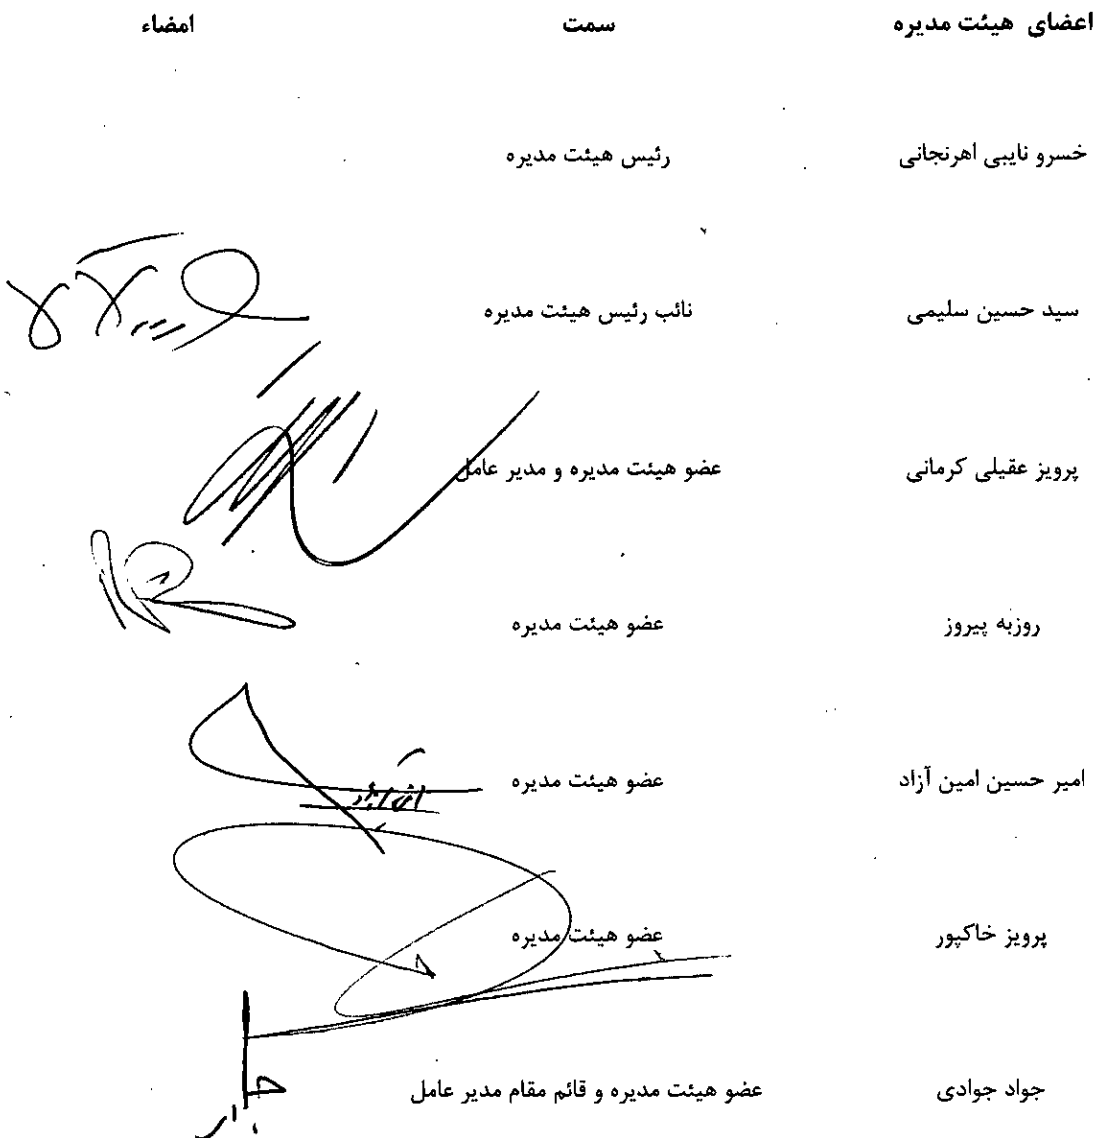 اعضای هیئت مدیره سمت امضاء
خسرو نایبی اهرنجانی رئیس هیئت مدیره
سید حسین سلیمی نائب رئیس هیئت مدیره
پرویز عقیلی کرمانی عضو هیئت مدیره و مدیر عامل
روزبه پیروز عضو هیئت مدیره
امیر حسین امین آزاد عضو هیئت مدیره
پرویز خاکپور عضو هیئت مدیره
جواد جوادی عضو هیئت مدیره و قائم مقام مدیر عامل